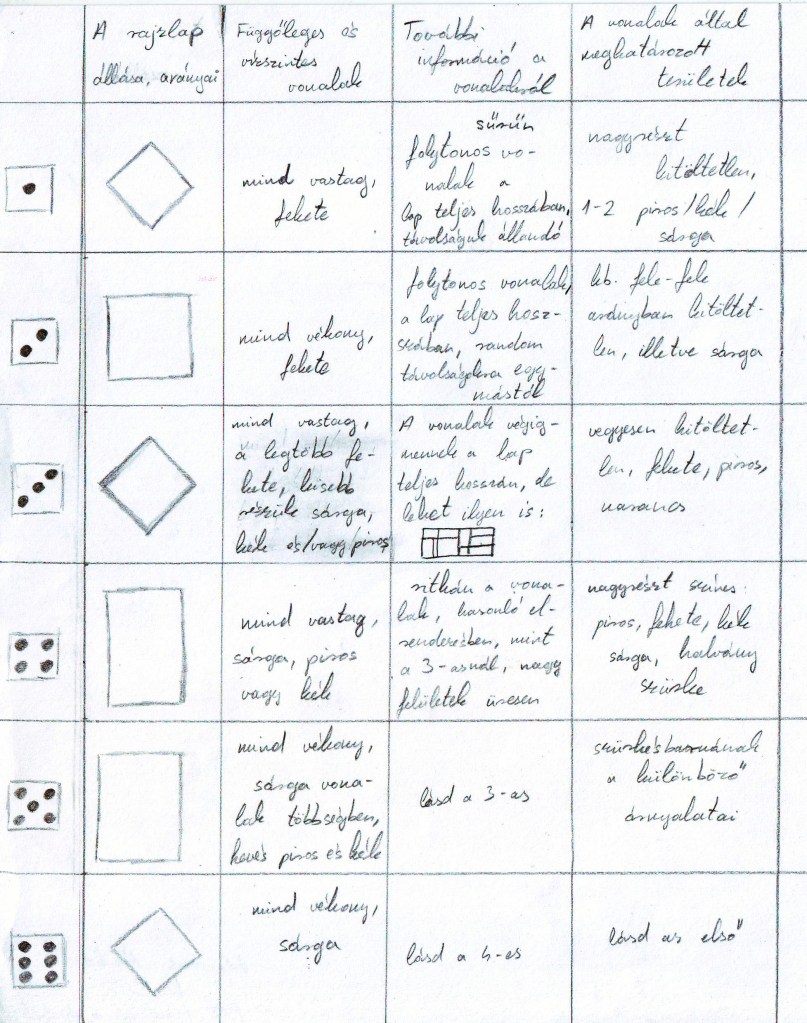 A rajzlap
állása, arányai
Függőleges és
vízszintes
vonalak
További
információ a
vonalakról
A vonalak által
meghatározott
területek
mind vastag,
fekete
sűrűn
folytonos vo-
nalak a
lap teljes hosszában,
távolságuk állandó
nagyrészt
kitöltetlen,
1-2 piros/kék/
sárga
mind vékony,
fekete
folytonos vonalak,
a lap teljes hosz-
szában, random
távolságokra egy-
mástól
kb. fele-fele
arányban kitöltet-
len, illetve sárga
mind vastag,
a legtöbb fe-
kete, kisebb
részük sárga,
kék és/vagy piros
A vonalak végig-
mennek a lap
teljes hosszán, de
lehet ilyen is:
vegyesen kitöltet-
len, fekete, piros,
narancs
mind vastag,
sárga, piros
vagy kék
ritkán a vona-
lak, hasonló el-
rendezésben, mint
a 3-asnál, nagy
felületek üresen
nagyrészt színes:
piros, fekete, kék
sárga, halvány
szürke
mind vékony,
sárga vona-
lak többségben,
kevés piros és kék
lásd a 3-as
szürkésbarnának
a különböző
árnyalatai
mind vékony,
sárga
lásd a 4-es
lásd az első